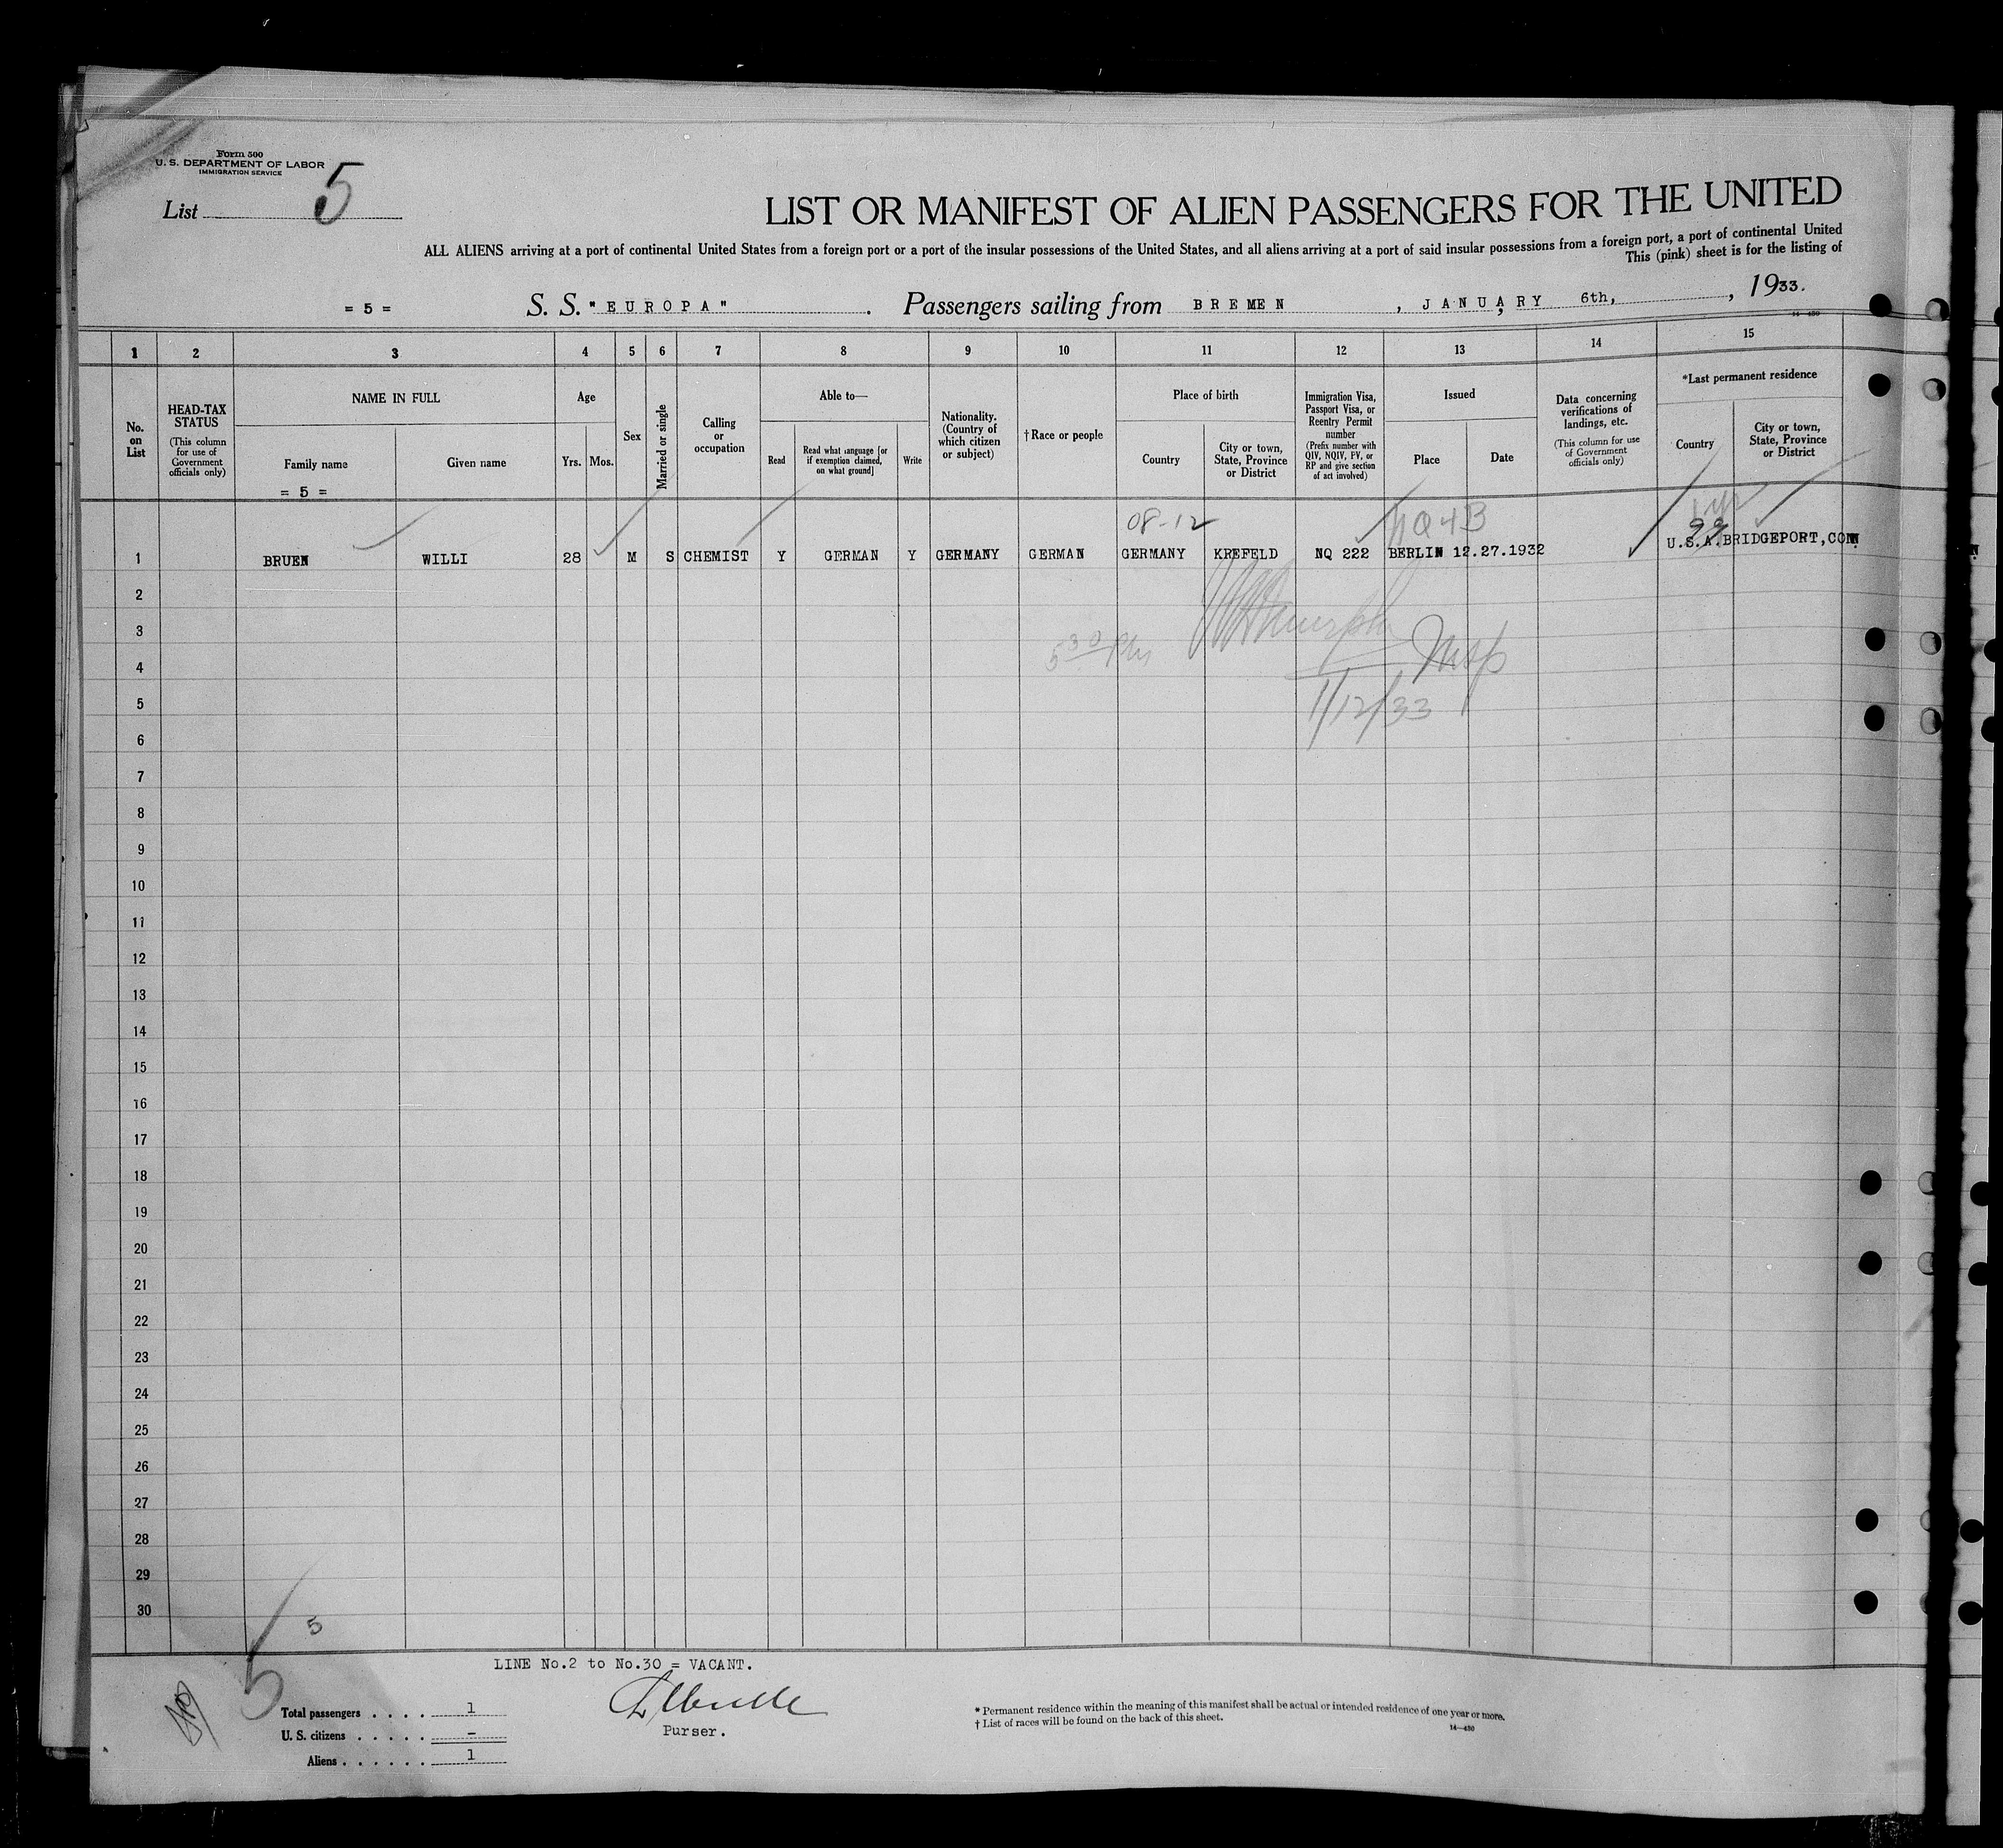 Form 500
U. S. DEPARTMENT OF LABOR
IMMIGRATION SERVICE
List 5
LIST OR MANIFEST OF ALIEN PASSENGERS FOR THE UNITED
ALL ALIENS arriving at a port of continental United States from a foreign port or a port of the insular possessions of the United States, and all aliens arriving at a port of said insular possessions from a foreign port, a port of continental United
This (pink) sheet is for the listing of
= 5 = S. S. "EUROPA" . Passengers sailing from BREMEN , JANUARY 6th, , 1933.
14—480
1 2 3 4 5 6 7 8 9 10 11 12 13 14 15
No. on List
HEAD-TAX STATUS
(This column for use of Government officials only)
NAME IN FULL
Family name
Given name
= 5 =
Age
Yrs. Mos.
Sex
Married or single
Calling or occupation
Able to—
Read
Read what language [or if exemption claimed, on what ground]
Write
Nationality. (Country of which citizen or subject)
†Race or people
Place of birth
Country
City or town, State, Province or District
Immigration Visa, Passport Visa, or Reentry Permit number
(Prefix number with QIV, NQIV, PV, or RP and give section of act involved)
Issued
Place
Date
Data concerning verifications of landings, etc.
(This column for use of Government officials only)
*Last permanent residence
Country
City or town, State, Province or District
08-12 NQ 4B 1 yr
99
1 BRUEN WILLI 28 M S CHEMIST Y GERMAN Y GERMANY GERMAN GERMANY KREFELD NQ 222 BERLIN 12.27.1932 U.S.A. BRIDGEPORT, CONN
2
3
5 30 PM Insp
4
1/12/33
5
6
7
8
9
10
11
12
13
14
15
16
17
18
19
20
21
22
23
24
25
26
27
28
29
30
5
LINE No.2 to No.30 = VACANT.
5
Total passengers . . . . 1
U. S. citizens . . . . . –
Aliens . . . . . . 1
Purser.
* Permanent residence within the meaning of this manifest shall be actual or intended residence of one year or more.
† List of races will be found on the back of this sheet.
14—480